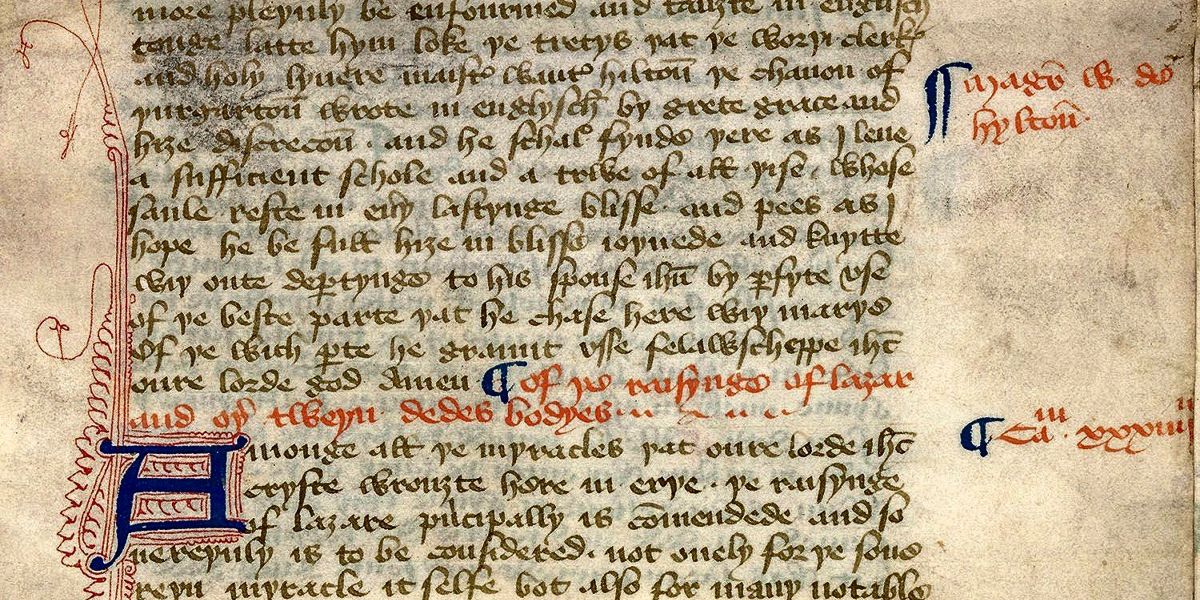 more pleynly be enfourmed and tauȝte in englisch
tonge latte hym loke þe tretys þat þe worþi clerk
and holy lyuere maistr̄ waut̄ hilton̄ þe chanon of
þurgarton̄ wrote in englysch by grete grace and
hiȝe discrecon̄ . and he schal fynde þere as I leue
a sufficient schole and a trwe of all þise . whose
saule reste in eu̅ lastynge blisse . and pees as I
hope he be full hiȝe in blisse ioynede and knytte
wiþ oute dep̄tynge to his spouse ihū by p̄fyte vse
of þe beste parte þat he chase here wiþ marye
Of þe wich p̄te he graunt vsse felawscheppe ihc̄
oure lorde god Amen ¶ Of þe raisynge of lazar
and oþ̄ tweyn dedes bodyes
Amonge all þe myracles þat oure lorde ihc̄
cryste wrouȝte here in erþe . þe raisynge
of lazare pn̄cipally is cōmendede and so
uereynly is to be considered . not onely for þe soue
reyn myracle it selfe bot also for many notable
¶ Magr̄ W. de
hylton̄ .
¶ Cam̄ . xxxiii